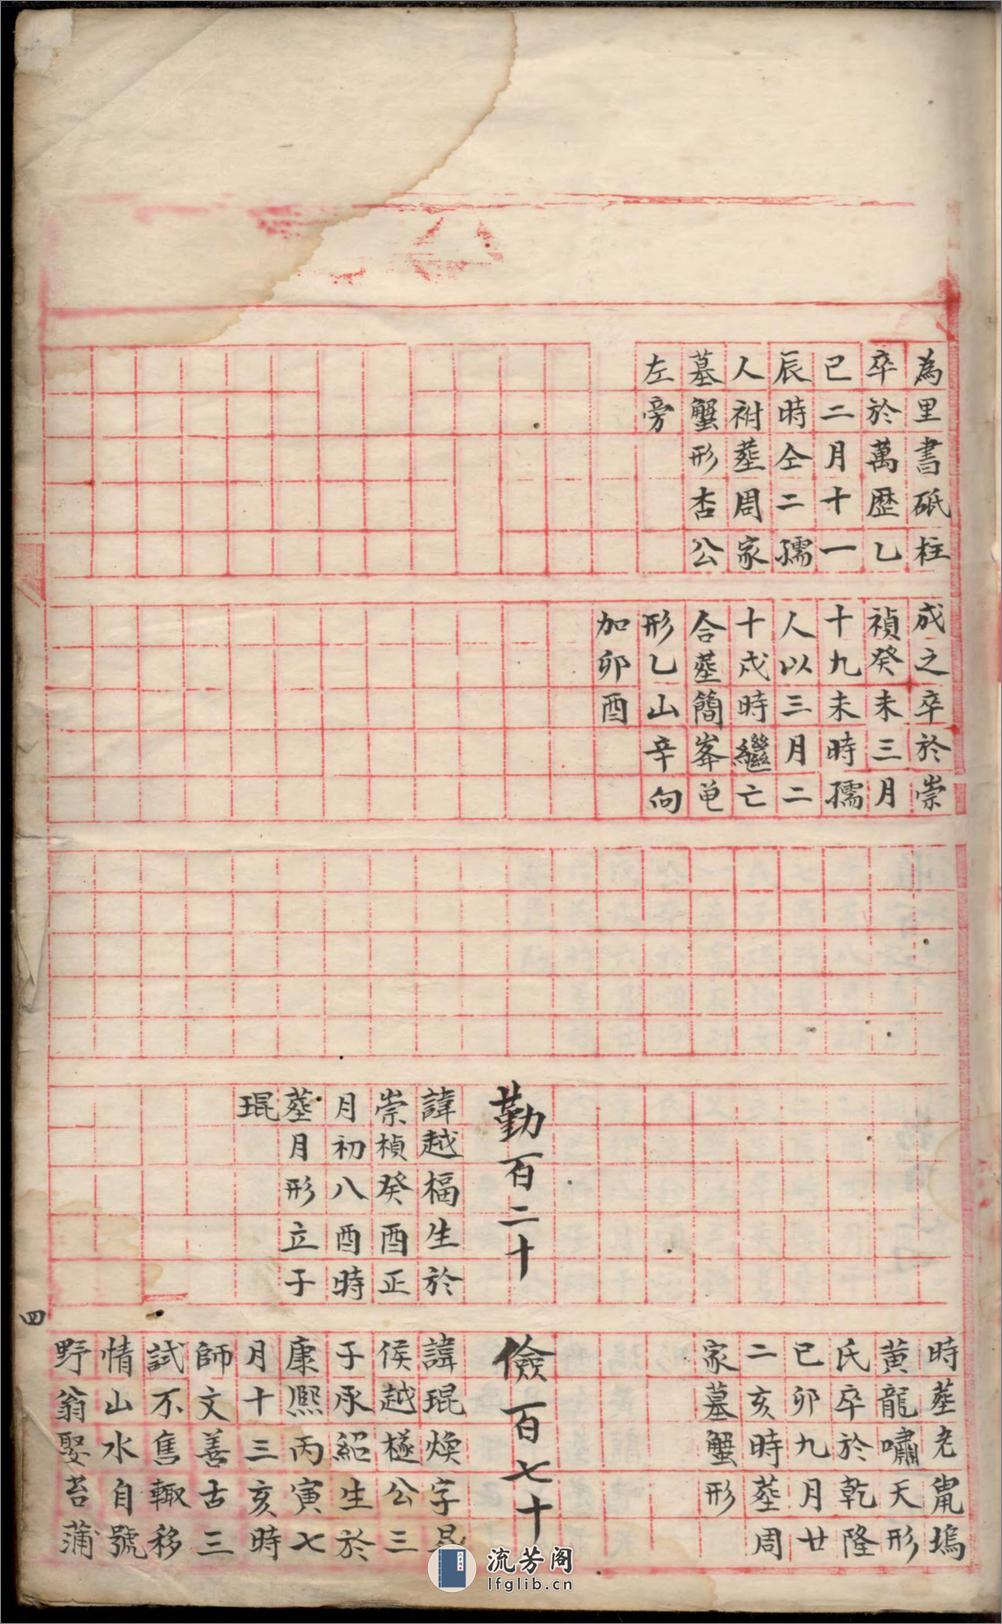 為里書砥柱
卒於萬歷乙
巳二月十一
辰時仝二孺
人祔塟周家
墓蟹形杏公
左旁
成之卒於崇
禎癸未三月
十九未時孺
人以三月二
十戌時繼亡
合塟簡峯皂
形乙山辛向
加卯酉
勤百二十
諱越福生於
崇楨癸酉正
月初八酉時
塟月形立子
琨
時塟老鳧塢
黄龍嘯天形
氏卒於乾隆
已卯九月廿
二亥時塟周
家墓蟹形
儉百七十
諱琨煥字
侯越檖公三
子承紹生於
康熙丙寅七
月十三亥時
師文善古三
試不售輒移
情山水自號
野翁娶苔蒲
四
流芳阁
lfglib.cn